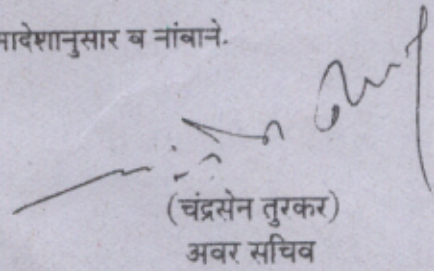 ादेशानुसार व नांवाने.
(चंद्रसेन तुरकर)
अवर सचिव